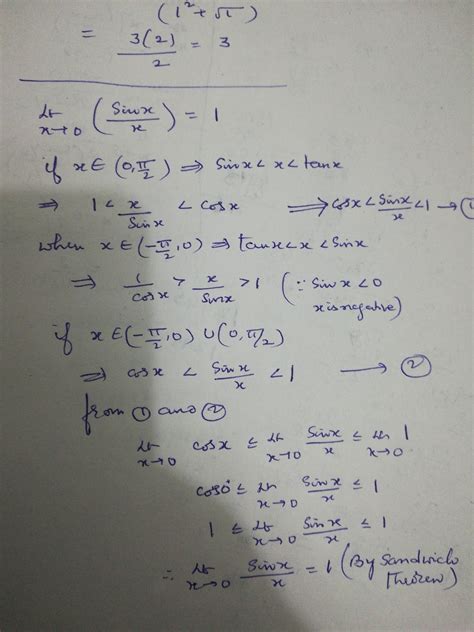 (1² + √1)
= 3(2)/2 = 3
Lt x→0 (Sinx/x) = 1
if x ∈ (0, π/2) ⇒ Sinx < x < tanx
⇒ 1 < x/Sinx < cosx ⇒ cosx < Sinx/x < 1 → ①
when x ∈ (-π/2, 0) ⇒ tanx < x < Sinx
⇒ 1/cosx > x/Sinx > 1 (∵ Sinx < 0
x is negative)
if x ∈ (-π/2, 0) ∪ (0, π/2)
⇒ cosx < Sinx/x < 1 → ②
from ① and ②
Lt x→0 cosx ≤ Lt x→0 Sinx/x ≤ Lt x→0 1
cos0 ≤ Lt x→0 Sinx/x ≤ 1
1 ≤ Lt x→0 Sinx/x ≤ 1
∴ Lt x→0 Sinx/x = 1 (By Sandwich
Theorem)